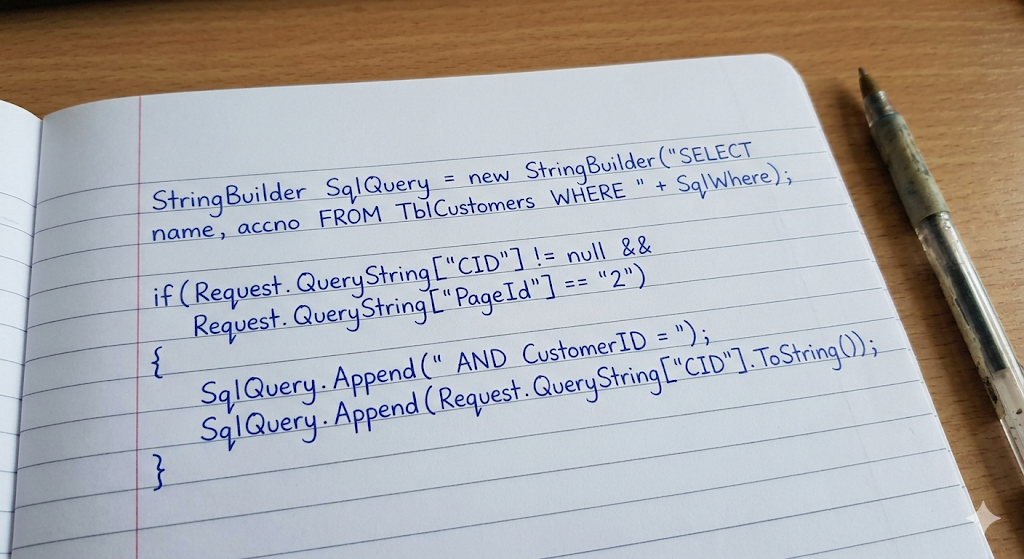 StringBuilder SqlQuery = new StringBuilder("SELECT
name, accno FROM TblCustomers WHERE " + SqlWhere);
if(Request.QueryString["CID"] != null &&
Request.QueryString["PageId"] == "2")
{
SqlQuery.Append(" AND CustomerID = ");
SqlQuery.Append(Request.QueryString["CID"].ToString());
}